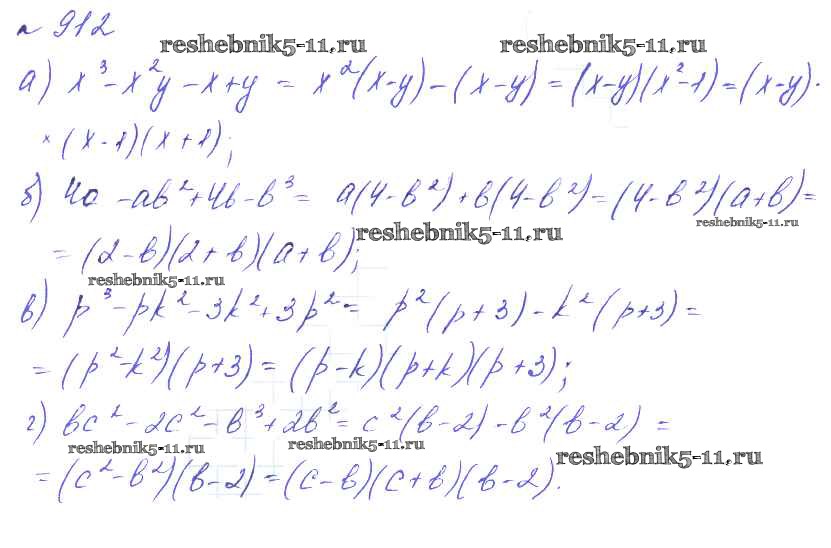 № 912
reshebnik5-11.ru reshebnik5-11.ru
а) x³ - x²y - x + y = x²(x-y) - (x-y) = (x-y)(x²-1) = (x-y)·
×(x-1)(x+1);
б) 4a - ab² + 4b - b³ = a(4-b²) + b(4-b²) = (4-b²)(a+b) =
reshebnik5-11.ru
= (2-b)(2+b)(a+b);
reshebnik5-11.ru
reshebnik5-11.ru
в) p³ - pk² - 3k² + 3p² = p²(p+3) - k²(p+3) =
= (p²-k²)(p+3) = (p-k)(p+k)(p+3);
г) bc² - 2c² - b³ + 2b² = c²(b-2) - b²(b-2) =
reshebnik5-11.ru reshebnik5-11.ru
reshebnik5-11.ru
= (c²-b²)(b-2) = (c-b)(c+b)(b-2).